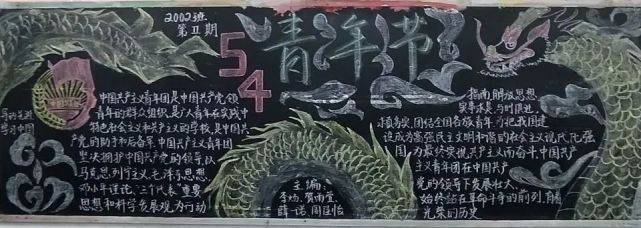 2002班
第Ⅱ期
54
青年节
中国共产主义青年团是中国共产党领
青年的群众组织,是广大青年在实践中
特色社会主义和共产主义的学校,是中国共
产党的助手和后备军.中国共产主义青年团
坚决拥护中国共产党的领导,以
马克思列宁主义、毛泽东思想、
邓小平理论、"三个代表"重要
思想和科学发展观为行动
主编:
指南,解放思想
实事求是,与时俱进
求真务实,团结全国各族青年,为把我国建
设成为富强民主文明和谐的社会主义现代化强
国,为最终实现共产主义而奋斗.中国共产
主义青年团在中国共产
党的领导下发展壮大,
始终站在革命斗争的前列,有着
光荣的历史